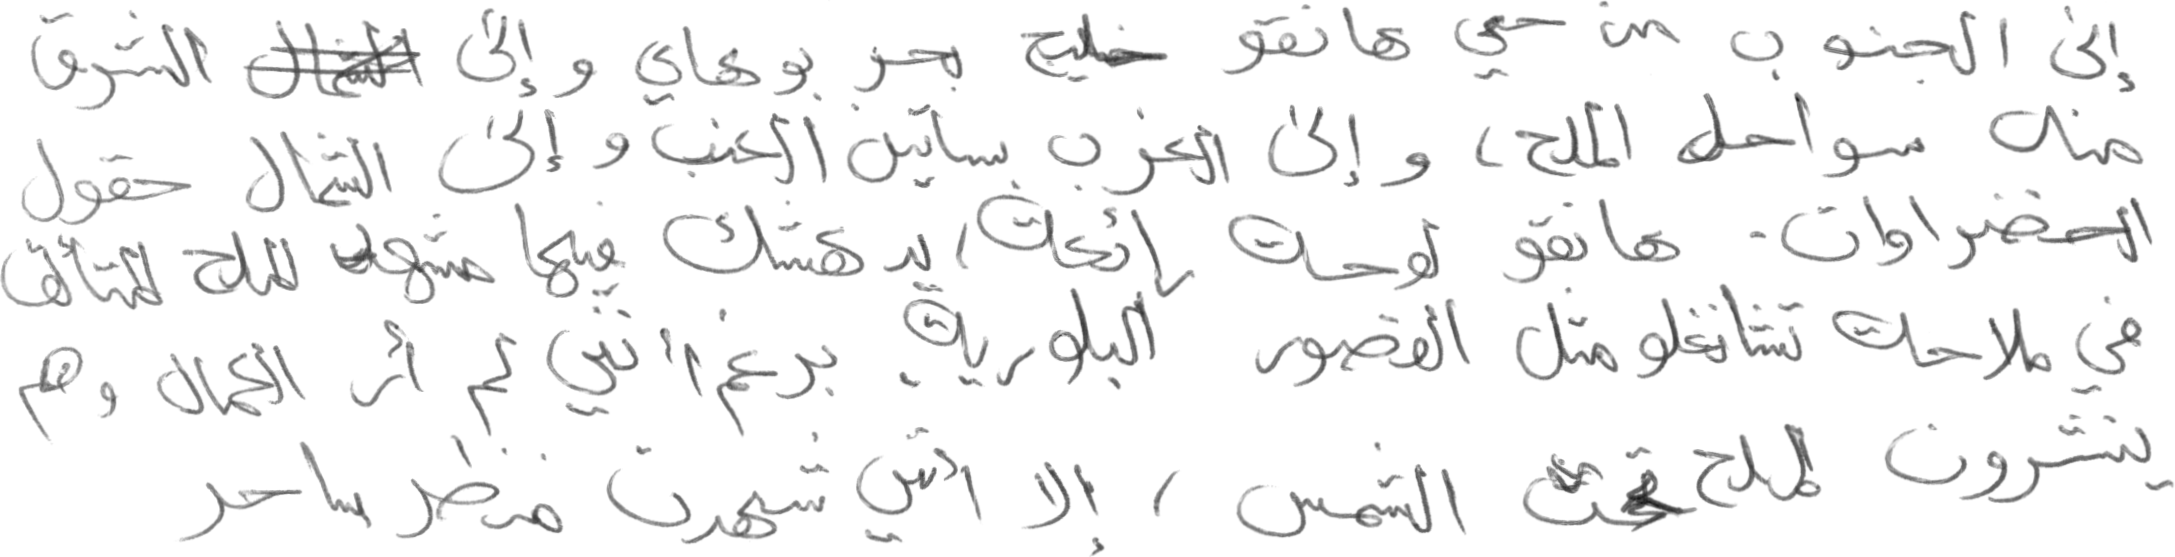 إلى الجنوب من حي هانقو خليج بحر بوهاي وإلى الشرق
منه سواحل الملح، وإلى الغرب بساتين العنب وإلى الشمال حقول
الخضراوات. هانقو لوحة رائعة، يدهشك فيها مشهد الملح المتألق
في ملاحة تشانغلو مثل القصور البلورية. برغم أنني لم أر العمال وهم
ينثرون الملح تحت الشمس، إلا أنني شهدت منظر ساحر